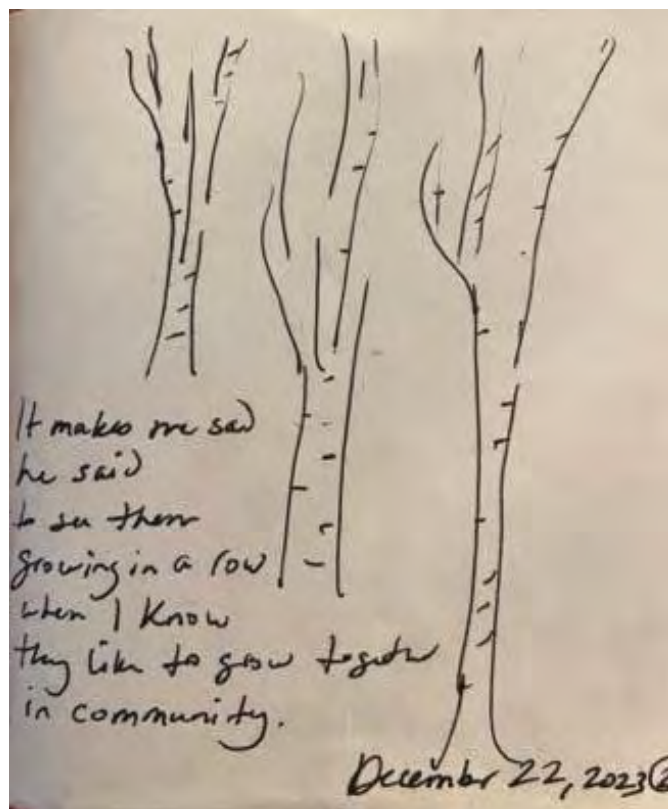 It makes me sad
he said
to see them
growing in a row
when I know
they like to grow together
in community.
December 22, 2023